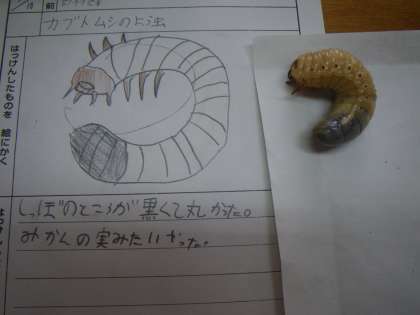 カブトムシのよう虫
はっけんしたものを 絵にかく
しっぽのところが黒くて丸かった。
みかんの実みたいだった。